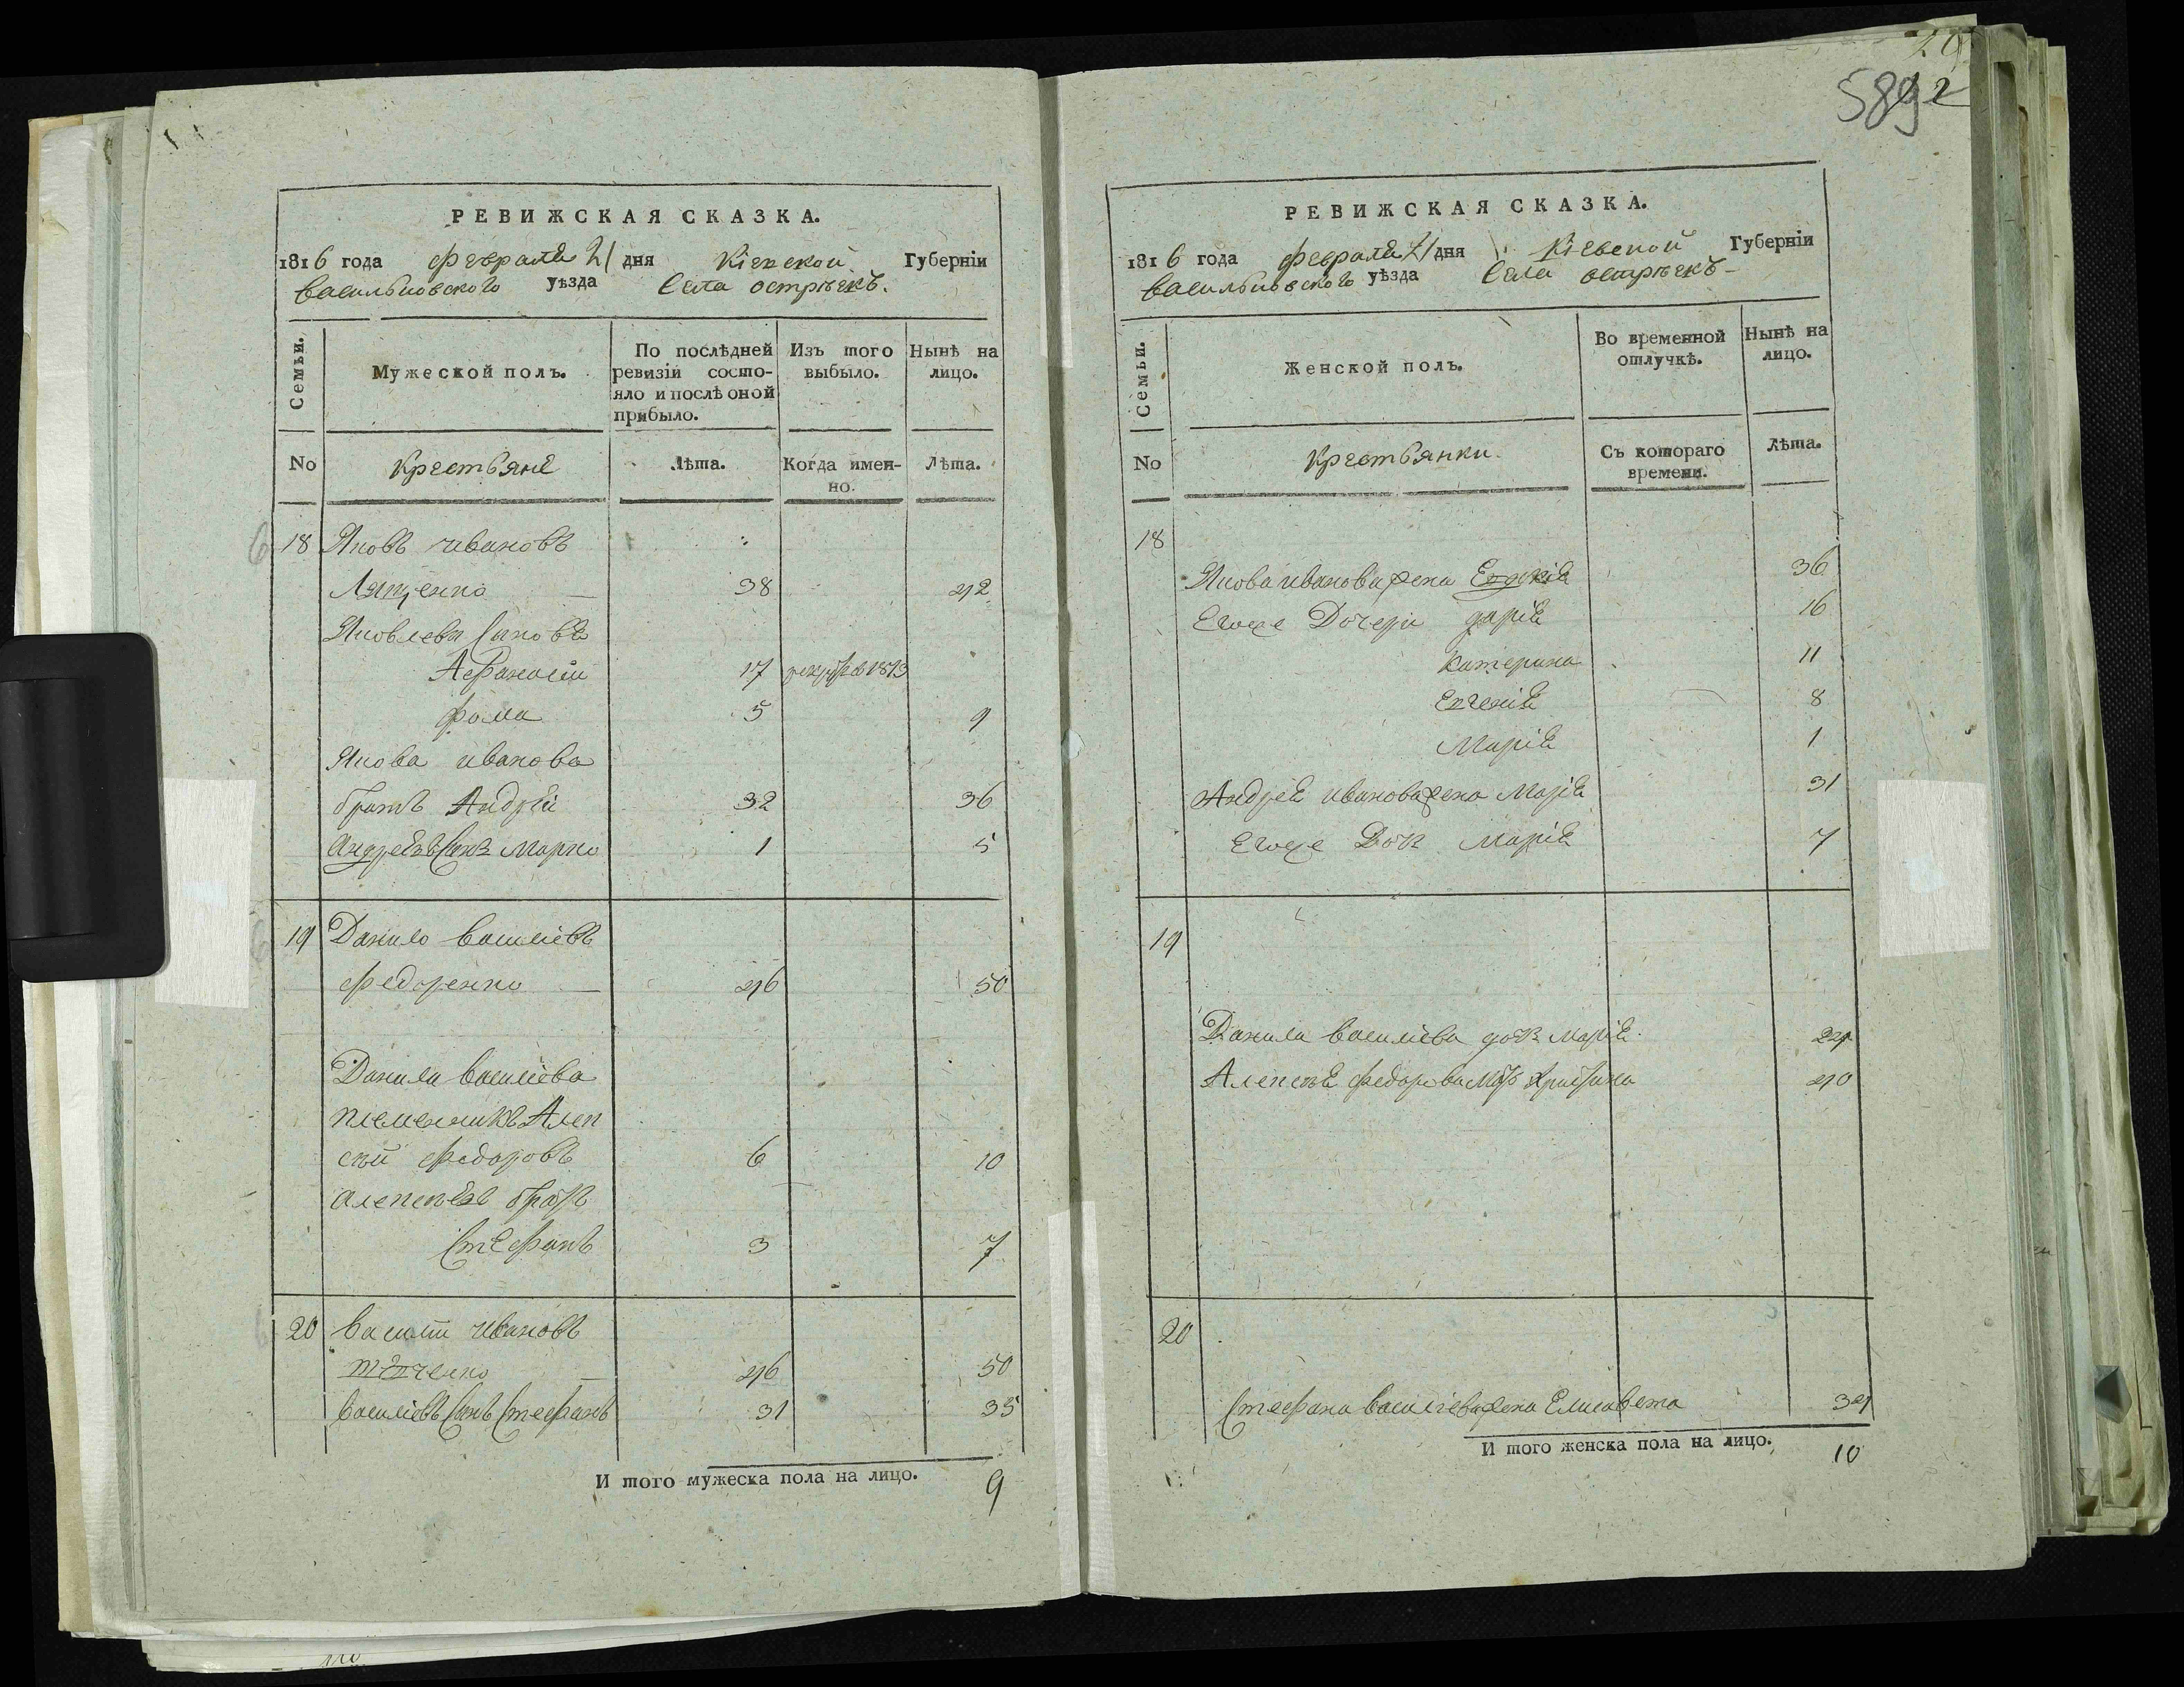 5892
РЕВИЖСКАЯ СКАЗКА.
1816 года февраля 21 дня Кіевской Губерніи
васильковского уѣзда Села острѣекъ.
Семьи.
Мужеской полъ.
По послѣдней ревизіи состо-
яло и послѣ оной
прибыло.
Изъ того
выбыло.
Нынѣ на
лицо.
No
Крестьяне
Лѣта.
Когда имен-
но.
Лѣта.
18 Яковъ ивановъ
Лященко 38 42
Яковлеви Сыновѣ
Афанасій 17 рекрут в 1813
фома 5 9
Якова иванова
братъ Андрѣй 32 36
Андреевъ Сынъ Марко 1 5
19 Данило василіевъ
федоренко 46 50
Данила василіева
племенникъ Алек
сѣй федоровъ 6 10
алексѣевъ братъ
Стефанъ 3 7
20 василій ивановъ
46 50
василіевъ Сынъ Стефанъ 31 35
И того мужеска пола на лицо. 9
РЕВИЖСКАЯ СКАЗКА.
1816 года февраля 21 дня Кіевской Губерніи
васильковского уѣзда Села острѣекъ
Семьи.
Женской полъ.
Во временной
отлучкѣ.
Нынѣ на
лицо.
No
Крестьянки
Съ котораго
времени.
Лѣта.
18
Якова иванова жена 36
Егоже Дочери дарія 16
катерина 11
Евгенія 8
Марія 1
Андрея иванова жена Марія 31
Егоже Доч Марія 7
19
Данила василіева доч марія 24
Алексѣя федорова мать христина 40
20
Стефана василіева жена Елисавета 34
И того женска пола на лицо. 10